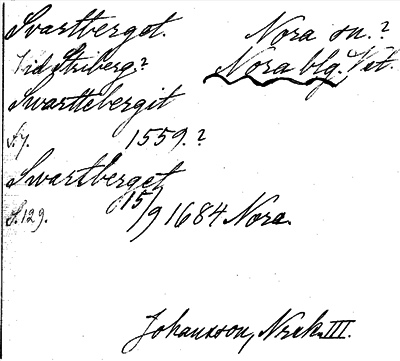 Svartberget. Nora sn.?
Vid Striberg? Nora blg. Vet.
Swarttebergit
S. 7. 1559.?
Swartberget
S. 129. 15/9 1684 Nora.
Johansson, Nrck. III.